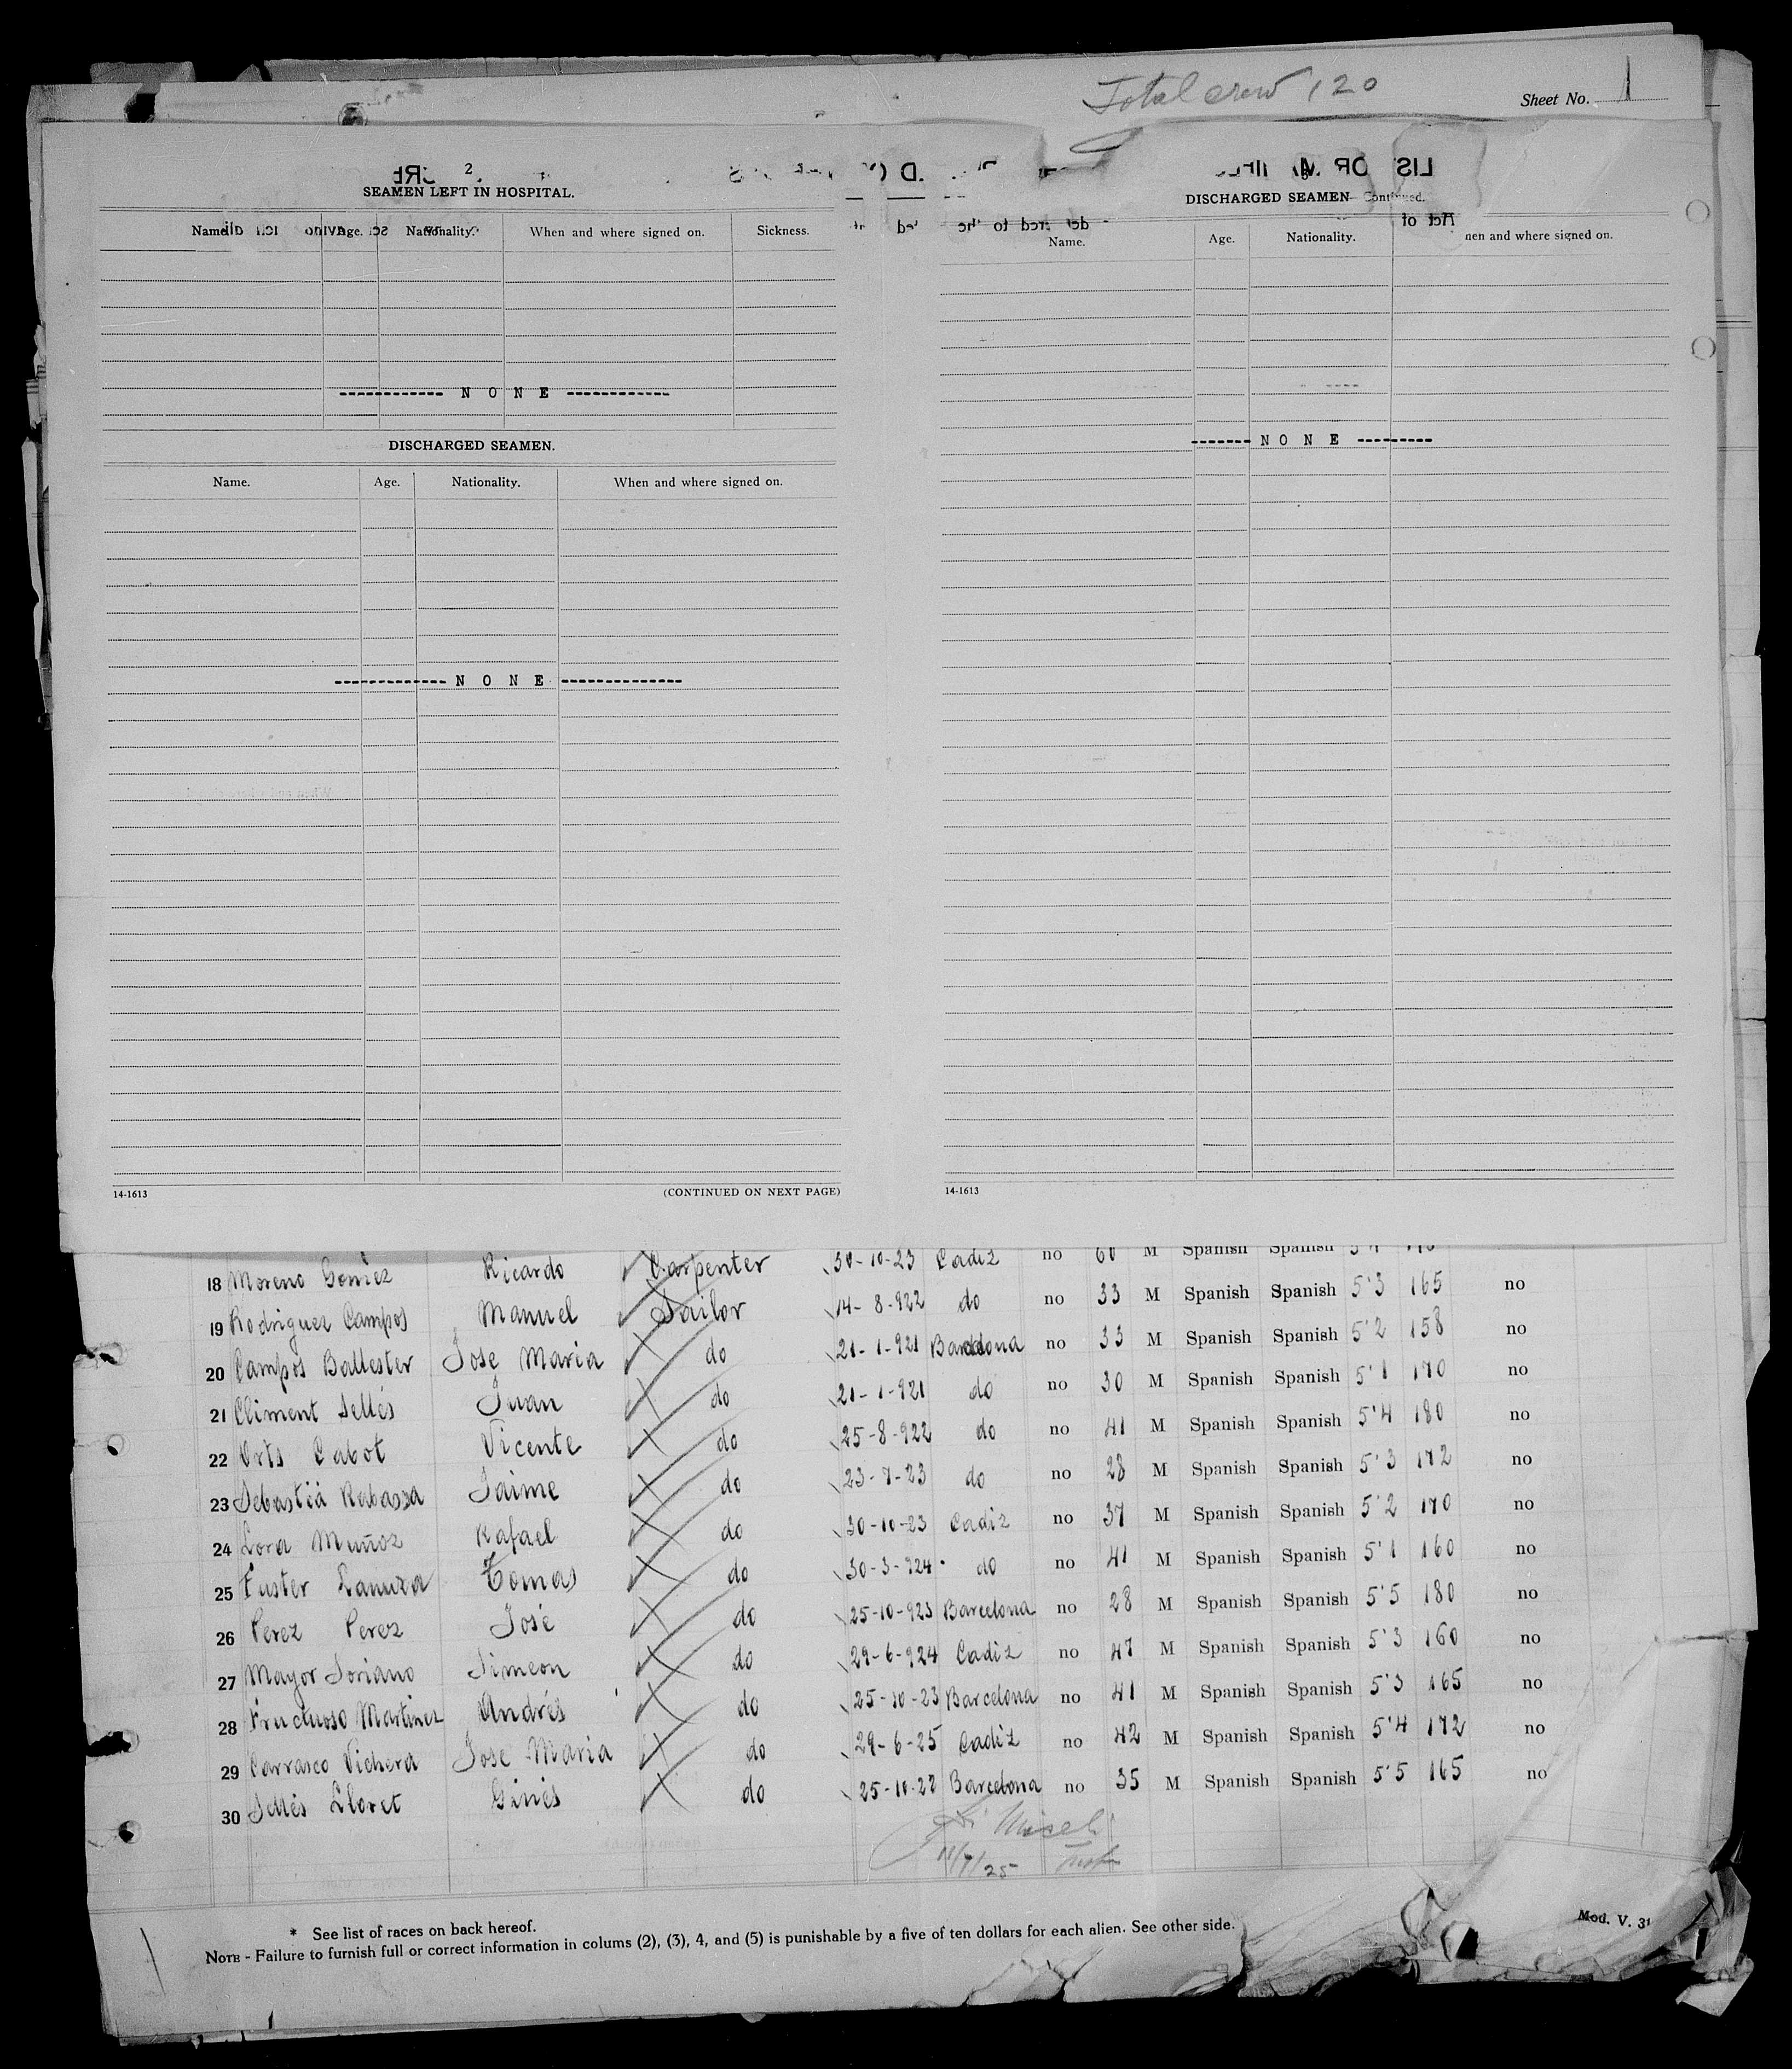 Total crew 120
Sheet No. 1
2
SEAMEN LEFT IN HOSPITAL.
Name. Age. Nationality. When and where signed on. Sickness.
------------ N O N E ------------
DISCHARGED SEAMEN.
Name. Age. Nationality. When and where signed on.
------------- N O N E --------------
14-1613 (CONTINUED ON NEXT PAGE)
DISCHARGED SEAMEN Continued.
Name. Age. Nationality. hen and where signed on.
------- N O N E ---------
14-1613
18 Moreno Gomez Ricardo Carpenter 30-10-23 Cadiz no 60 M Spanish Spanish
19 Rodriguez Campos Manuel Sailor 14-8-922 do no 33 M Spanish Spanish 5'3 165 no
20 Campos Ballester Jose Maria do 21-1-921 Barcelona no 33 M Spanish Spanish 5'2 158 no
21 Climent Sellés Juan do 21-1-921 do no 30 M Spanish Spanish 5'1 170 no
22 Orts Cabot Vicente do 25-8-922 do no 41 M Spanish Spanish 5'4 180 no
23 Sebastiá Rabassa Jaime do 23-7-23 do no 28 M Spanish Spanish 5'3 172 no
24 Lora Muñoz Rafael do 30-10-23 Cadiz no 37 M Spanish Spanish 5'2 170 no
25 Fuster Lanuza Tomas do 30-3-924 do no 41 M Spanish Spanish 5'1 160 no
26 Perez Perez José do 25-10-923 Barcelona no 28 M Spanish Spanish 5'5 180 no
27 Mayor Soriano Simeon do 29-6-924 Cadiz no 47 M Spanish Spanish 5'3 160 no
28 Fructuoso Martinez Andrés do 25-10-23 Barcelona no 41 M Spanish Spanish 5'3 165 no
29 Carrasco Vichera Jose Maria do 29-6-25 Cadiz no 42 M Spanish Spanish 5'4 172 no
30 Sellés Lloret Ginés do 25-10-22 Barcelona no 35 M Spanish Spanish 5'5 165 no
11/7/25
* See list of races on back hereof.
NOTE - Failure to furnish full or correct information in colums (2), (3), 4, and (5) is punishable by a five of ten dollars for each alien. See other side.
Mod. V. 31